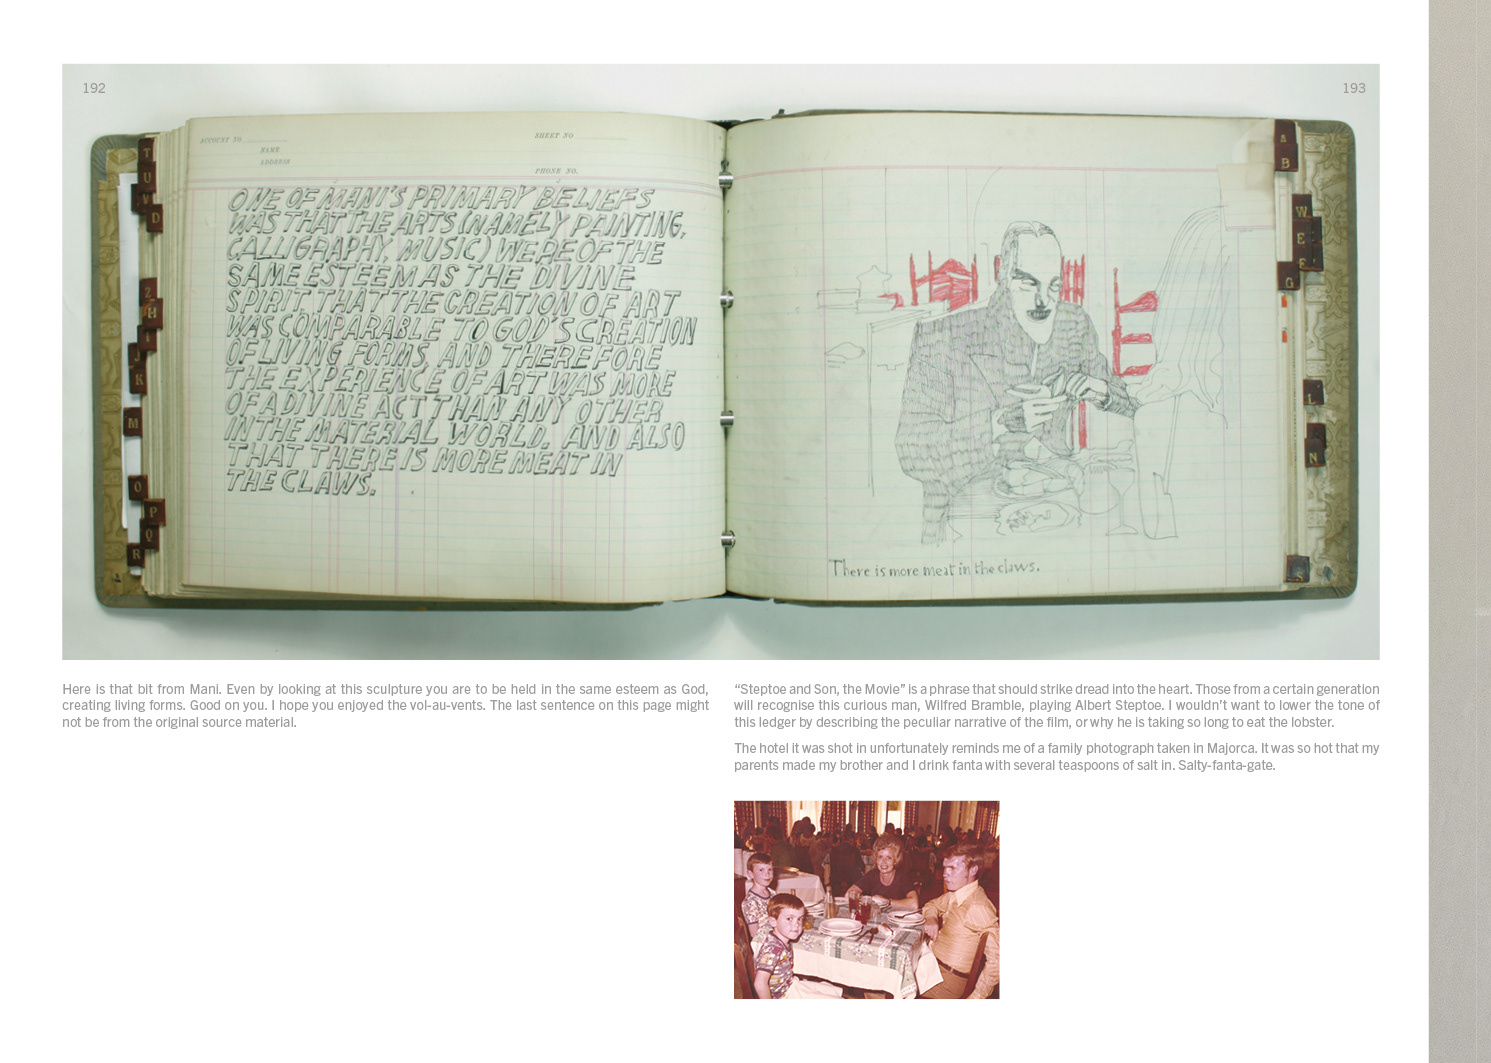 192
193
ACCOUNT NO
SHEET NO
NAME
ADDRESS
PHONE NO.
ONE OF MANI'S PRIMARY BELIEFS
WAS THAT THE ARTS (NAMELY PAINTING,
CALLIGRAPHY, MUSIC) WERE OF THE
SAME ESTEEM AS THE DIVINE
SPIRIT, THAT THE CREATION OF ART
WAS COMPARABLE TO GOD'S CREATION
OF LIVING FORMS, AND THEREFORE
THE EXPERIENCE OF ART WAS MORE
OF A DIVINE ACT THAN ANY OTHER
IN THE MATERIAL WORLD. AND ALSO
THAT THERE IS MORE MEAT IN
THE CLAWS.
T
U
V
D
Z
H
I
J
K
M
O
P
Q
R
A
B
W
E
F
G
L
N
There is more meat in the claws.
Here is that bit from Mani. Even by looking at this sculpture you are to be held in the same esteem as God,
creating living forms. Good on you. I hope you enjoyed the vol-au-vents. The last sentence on this page might
not be from the original source material.
“Steptoe and Son, the Movie” is a phrase that should strike dread into the heart. Those from a certain generation
will recognise this curious man, Wilfred Bramble, playing Albert Steptoe. I wouldn’t want to lower the tone of
this ledger by describing the peculiar narrative of the film, or why he is taking so long to eat the lobster.
The hotel it was shot in unfortunately reminds me of a family photograph taken in Majorca. It was so hot that my
parents made my brother and I drink fanta with several teaspoons of salt in. Salty-fanta-gate.